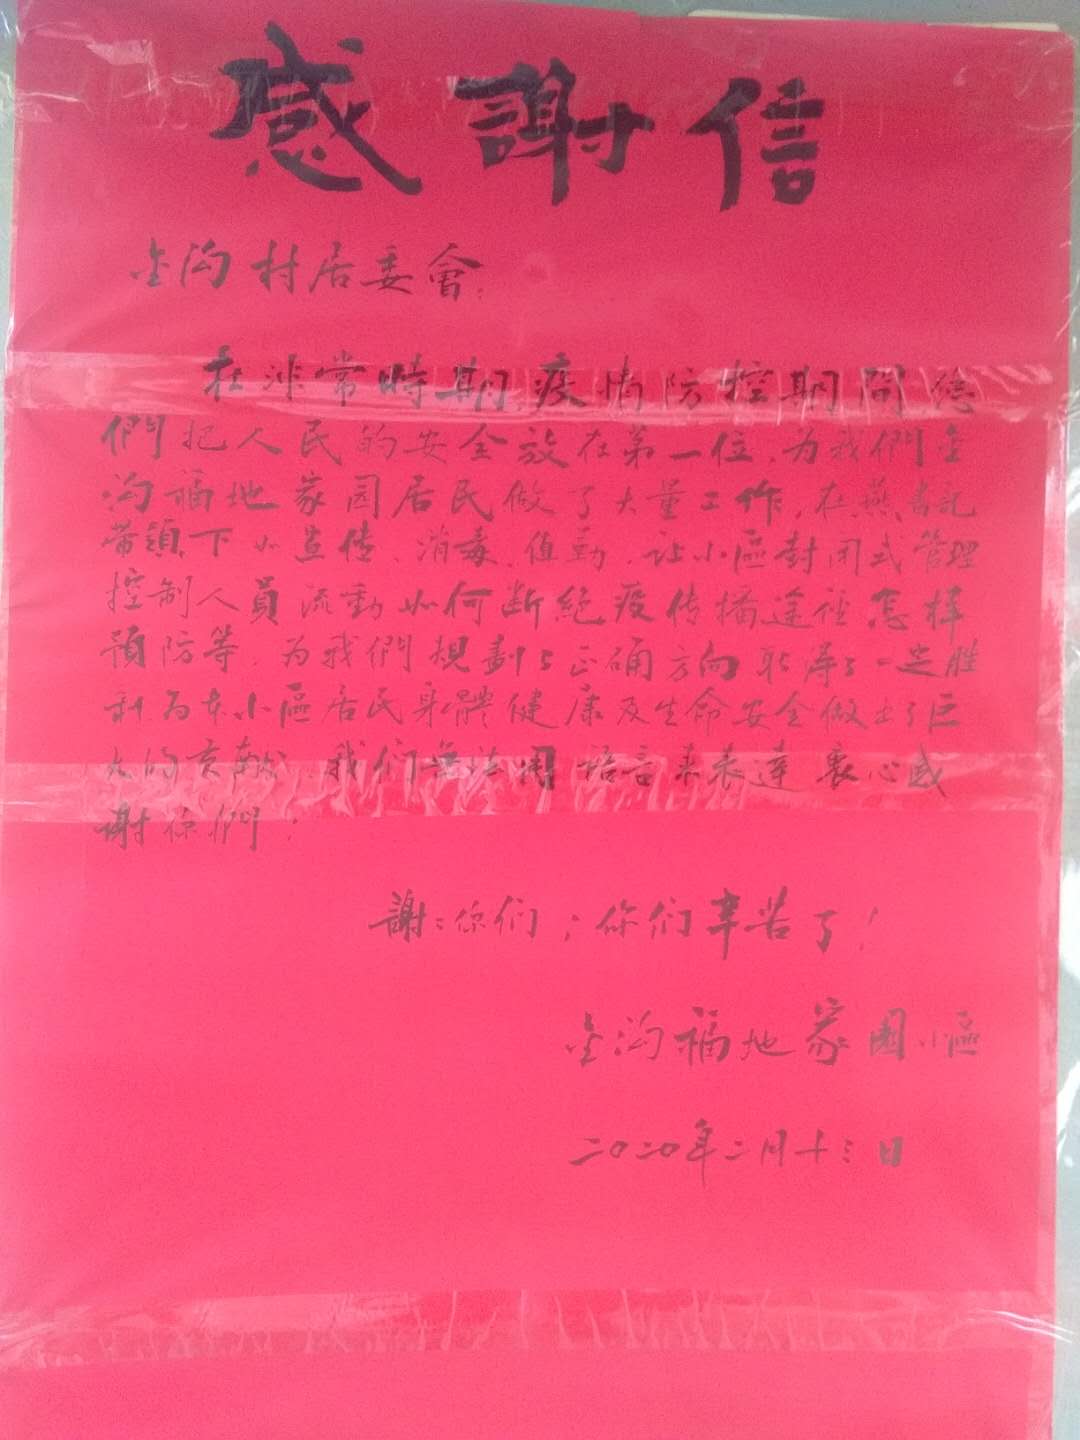 感謝信
金沟村居委會:
在非常時期,疫情防控期间您
們把人民的安全放在第一位,为我們金
沟福地家园居民做了大量工作,在燕书記
带領下从宣传、消毒、值勤、让小區封闭式管理
控制人員流動如何断絕疫传播途径怎样
預防等,为我們規劃了正确方向取得了一定胜
利为本小區居民身體健康及生命安全做出了巨
大的贡献,我们無法用語言来表達衷心感
謝你們!
謝:你们;你们辛苦了!
金沟福地家園小區
二0二0年二月十三日